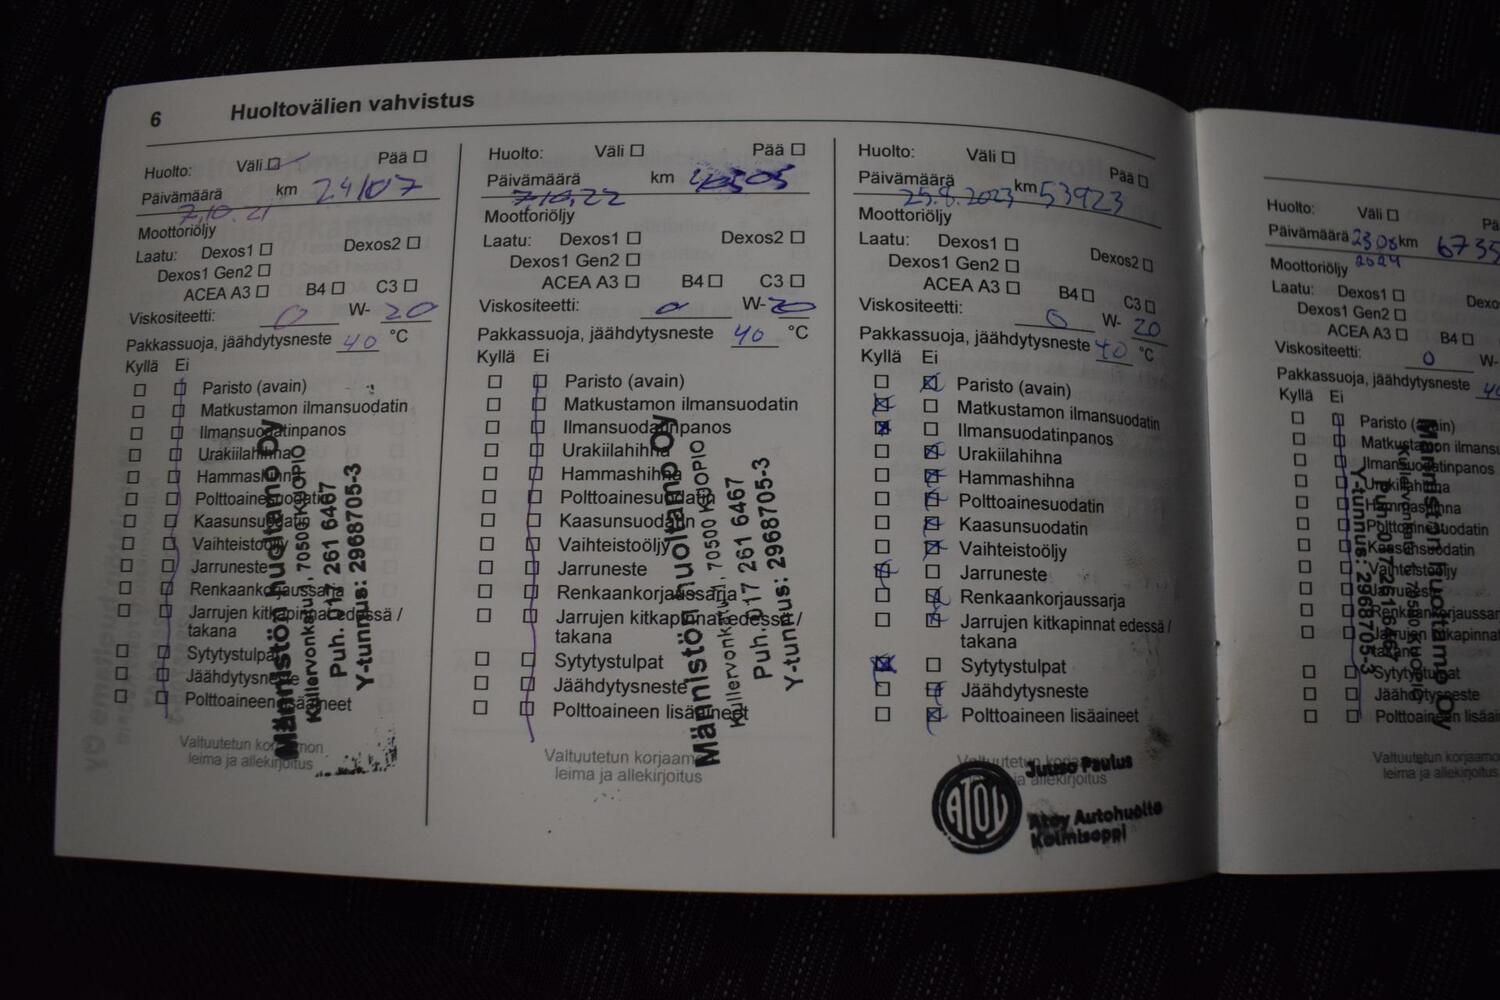 6 Huoltovälien vahvistus
Huolto: Väli Pää
Päivämäärä 7.10.21 km 24107
Moottoriöljy
Laatu: Dexos1 Dexos2
Dexos1 Gen2
ACEA A3 B4 C3
Viskositeetti: 0 W- 20
Pakkassuoja, jäähdytysneste 40 °C
Kyllä Ei
Paristo (avain)
Matkustamon ilmansuodatin
Ilmansuodatinpanos
Urakiilahihna
Hammashihna
Polttoainesuodatin
Kaasunsuodatin
Vaihteistoöljy
Jarruneste
Renkaankorjaussarja
Jarrujen kitkapinnat edessä /
takana
Sytytystulpat
Jäähdytysneste
Polttoaineen lisäaineet
Valtuutetun korjaamon
leima ja allekirjoitus
Männistön huoltamo Oy
Kullervonkatu, 70500 KUOPIO
Puh. 017 261 6467
Y-tunnus: 2968705-3
Huolto: Väli Pää
Päivämäärä 7.10.22 km
Moottoriöljy
Laatu: Dexos1 Dexos2
Dexos1 Gen2
ACEA A3 B4 C3
Viskositeetti: 0 W- 20
Pakkassuoja, jäähdytysneste 40 °C
Kyllä Ei
Paristo (avain)
Matkustamon ilmansuodatin
Ilmansuodatinpanos
Urakiilahihna
Hammashihna
Polttoainesuodatin
Kaasunsuodatin
Vaihteistoöljy
Jarruneste
Renkaankorjaussarja
Jarrujen kitkapinnat edessä /
takana
Sytytystulpat
Jäähdytysneste
Polttoaineen lisäaineet
Valtuutetun korjaamon
leima ja allekirjoitus
Männistön huoltamo Oy
Kullervonkatu, 70500 KUOPIO
Puh. 017 261 6467
Y-tunnus: 2968705-3
Huolto: Väli Pää
Päivämäärä 25.8.2023 km 53923
Moottoriöljy
Laatu: Dexos1 Dexos2
Dexos1 Gen2
ACEA A3 B4 C3
Viskositeetti: 0 W- 20
Pakkassuoja, jäähdytysneste 40 °C
Kyllä Ei
Paristo (avain)
Matkustamon ilmansuodatin
Ilmansuodatinpanos
Urakiilahihna
Hammashihna
Polttoainesuodatin
Kaasunsuodatin
Vaihteistoöljy
Jarruneste
Renkaankorjaussarja
Jarrujen kitkapinnat edessä /
takana
Sytytystulpat
Jäähdytysneste
Polttoaineen lisäaineet
leima ja allekirjoitus
ATOY
Juuso Paulus
Atoy Autohuolto
Kolmisoppi
Huolto: Väli Pä
Päivämäärä 23 08 km 6735
2024
Moottoriöljy
Laatu: Dexos1 Dexo
Dexos1 Gen2
ACEA A3 B4
Viskositeetti: 0 W-
Pakkassuoja, jäähdytysneste 40
Kyllä Ei
Paristo (avain)
Matkustamon ilmansu
Ilmansuodatinpanos
Urakiilahihna
Hammashihna
Polttoainesuodatin
Kaasunsuodatin
Vaihteistoöljy
Jarruneste
Renkaankorjaussar
Jarrujen kitkapinnat
takana
Sytytystulpat
Jäähdytysneste
Polttoaineen lisäai
Valtuutetun korjaamo
leima ja allekirjoitus
Männistön huoltamo Oy
Y-tunnus: 2968705-3